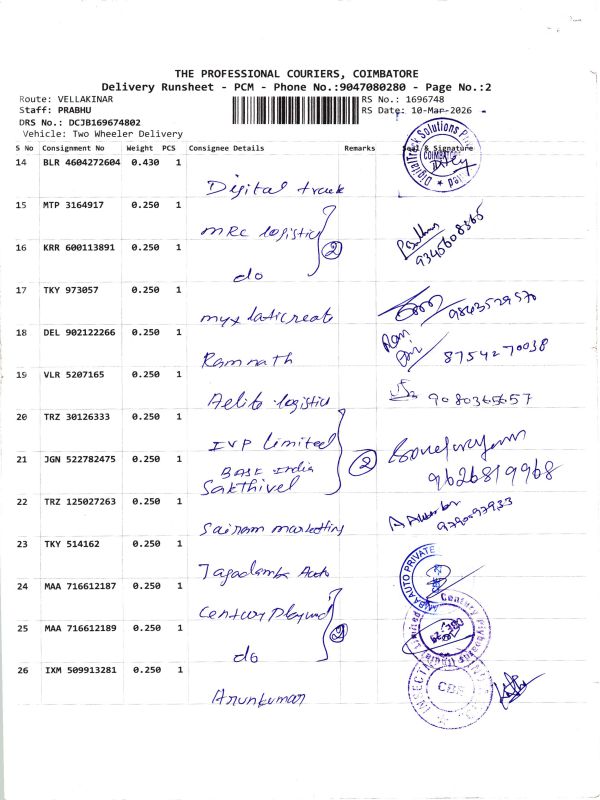 THE PROFESSIONAL COURIERS, COIMBATORE
Delivery Runsheet - PCM - Phone No.:9047080280 - Page No.:2
Route: VELLAKINAR
RS No.: 1696748
Staff: PRABHU
RS Date: 10-Mar-2026
DRS No.: DCJB169674802
Vehicle: Two Wheeler Delivery
S No Consignment No Weight PCS Consignee Details Remarks Seal & Signature
14 BLR 4604272604 0.430 1
Digital track
DigitalTrack Solutions
COIMBATORE
15 MTP 3164917 0.250 1
MRC logistics
2
9345608365
16 KRR 600113891 0.250 1
do
17 TKY 973057 0.250 1
9843529570
18 DEL 902122266 0.250 1
Ramnath
Ram
8754270038
19 VLR 5207165 0.250 1
Aelite logistics
9080365657
20 TRZ 30126333 0.250 1
IVP Limited
2
21 JGN 522782475 0.250 1
BASE India
Sakthivel
9626819968
22 TRZ 125027263 0.250 1
Sairam marketting
9790097933
23 TKY 514162 0.250 1
Jagadamba Auto
BA AUTO PRIVATE
24 MAA 716612187 0.250 1
Century Plywood
2
Century Plyboards (India) Limited
25 MAA 716612189 0.250 1
do
26 IXM 509913281 0.250 1
Arunkumar
CBE